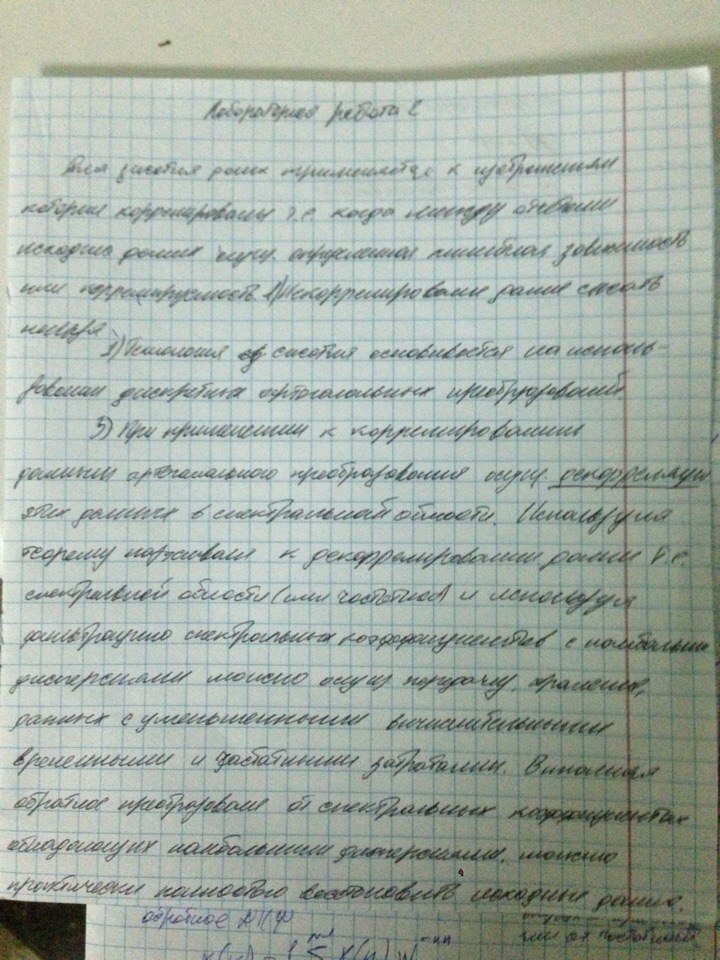 Лабораторная работа 2
Для сжатия даных применяется к изображениям
которые коррелированы т.е. когда между
исходные даные осущ. определенная линейная зависимость
или коррелируемость. Некоррелированые даные сжать
нельзя
2) Технология сжатия основивается на исполь-
зовании дискретных ортогональных преобразований.
3) При применении к коррелированым
данным ортогонального преобразования осущ декорреляция
этих данных в спектральной области. Используя
теорему к декоррелированым даным т.е.
спектральной области (или частотной) и используя
фильтрацию спектральных коэффициентов с наибольшими
дисперсиями можно осущ передачу, хранение,
данных с уменьшенными вичислительными
временными и затратами. Виполняя
обратное преобразование от спектральных коэффициентах
обладающих наибольшими дисперсиями, можно
практически полностью восстоновить исходные даные.
обратное ДПФ